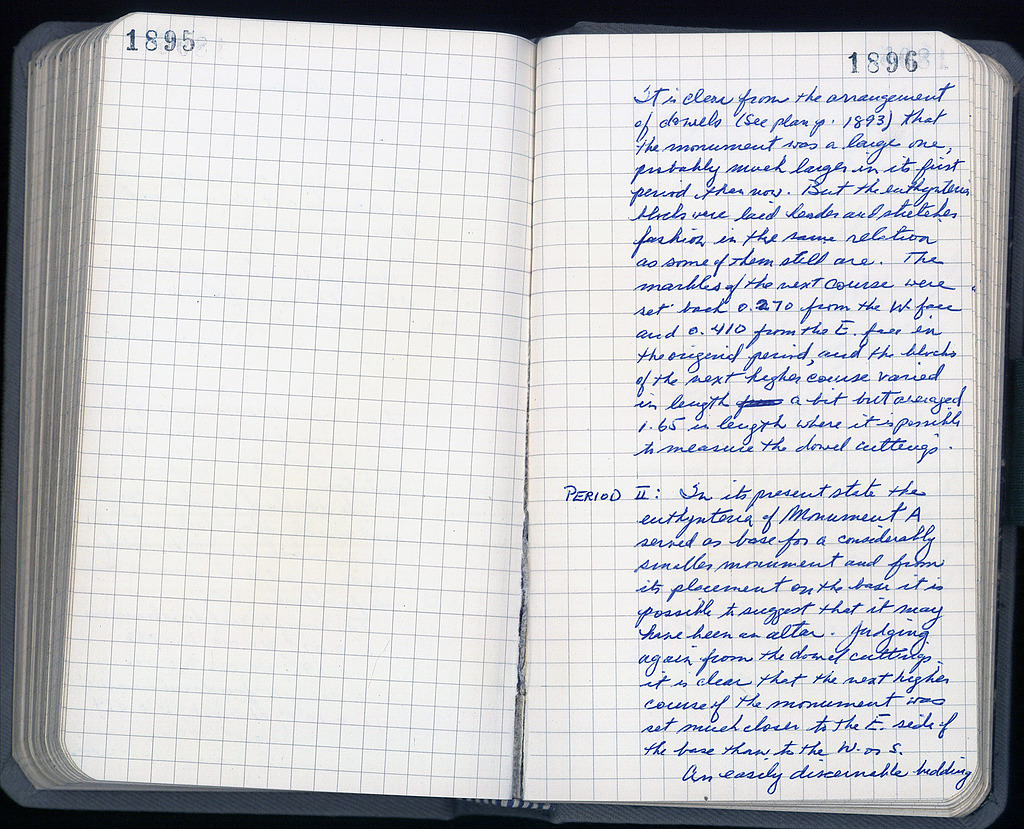 1895
1896
It is clear from the arrangement
of dowels (see plan p. 1893) that
the monument was a large one,
probably much larger in its first
period than now. But the euthynteria
blocks were laid header and stretcher
fashion in the same relation
as some of them still are. The
marbles of the next course were
set back 0.270 from the W. face
and 0.410 from the E. face in
the original period, and the blocks
of the next higher course varied
in length a bit but averaged
1.65 in length where it is possible
to measure the dowel cuttings.
PERIOD II: In its present state the
euthynteria of Monument A
served as base for a considerably
smaller monument and from
its placement on the base it is
possible to suggest that it may
have been an altar. Judging
again from the dowel cuttings
it is clear that the next higher
course of the monument was
set much closer to the E. side of
the base than to the W. or S.
An easily discernable bedding